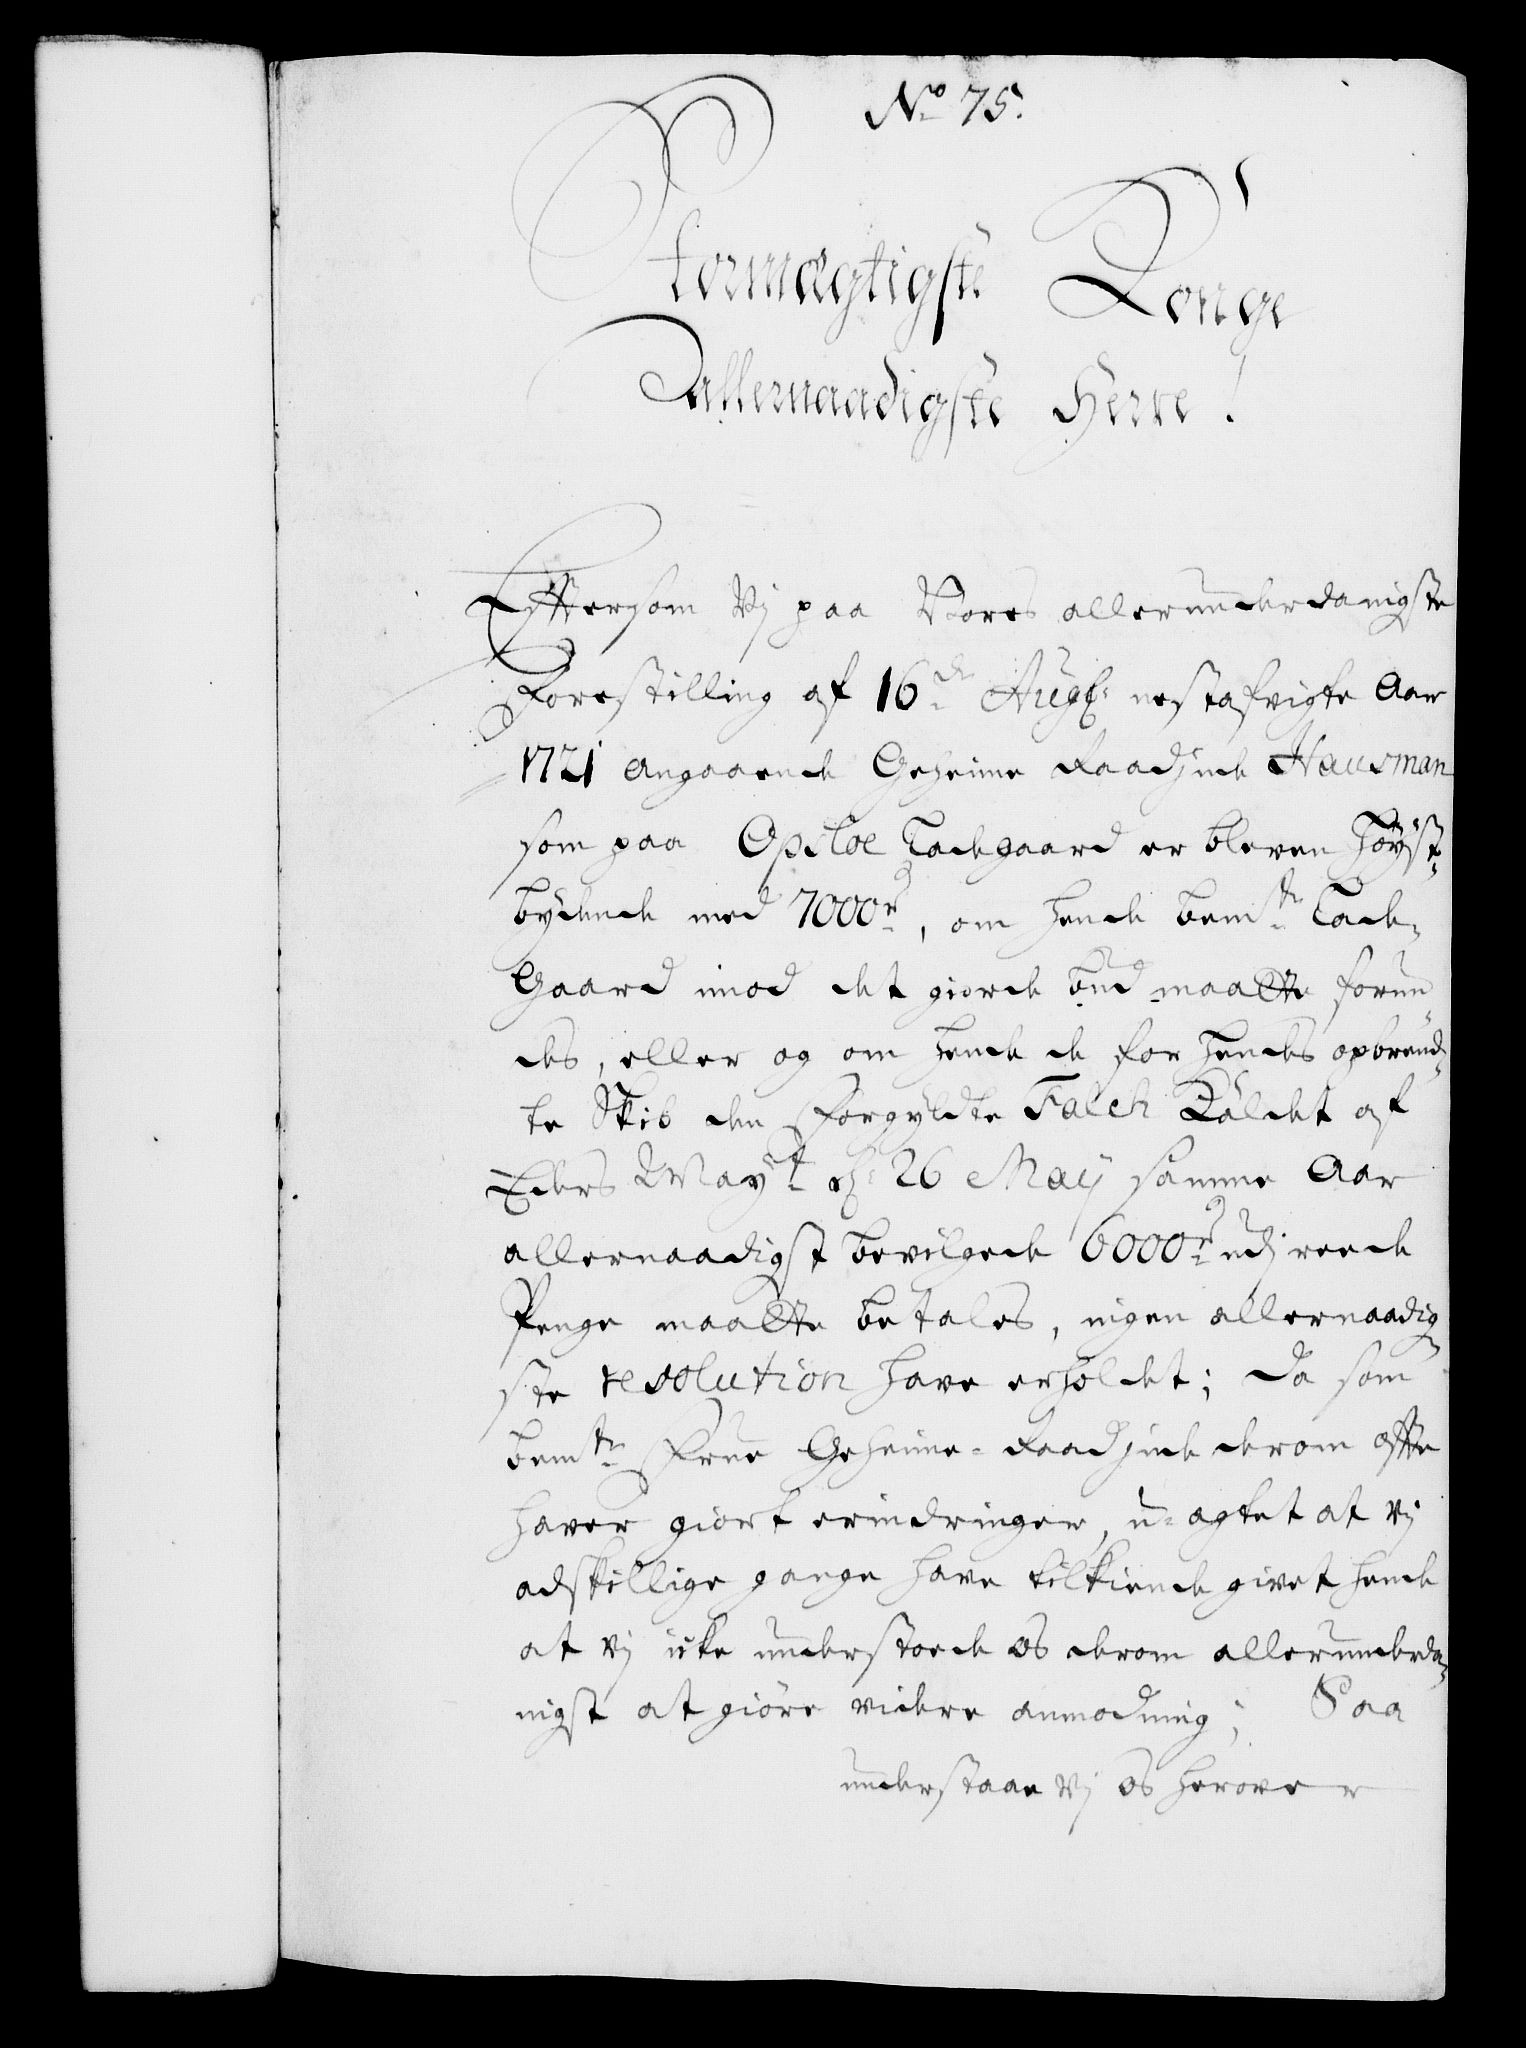 No 75.
Stormægtigste Konge
allernaadigste Herre!
Efftersom Vj paa Vores allerunderdanigste
Forestilling af 16de Augs: nestafvigte Aar
1721 angaaende Geheime Raadjnde Hausman
som paa Opsloe Ladegaard er bleven høyst-
bydende med 7000 rd, om hende bemte Lade-
Gaard imod det giorde bud maatte forun
des, eller og om hende de for hendes opbrend-
te Skib den forgyldte Falch kaldet af
Eders Mayt d: 26 Maij samme Aar
allernaadigst bevilgede 6000 rd udj reede
Penge maatte betales, ingen allernaadig-
ste resolution have erholdet; da som
bemte Frue Geheime-Raadjnde derom offte
haver giort erindringer, u-agtet at vj
adskillige gange have tilkiende givet hende
at vj icke understoede os derom allerunderda-
nigst at giöre videre anmodning; Saa
understaae vj os herover